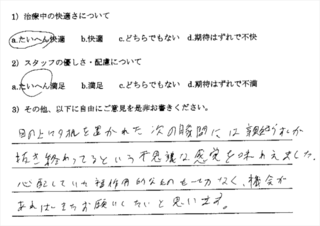 1) 治療中の快適さについて
a.たいへん快適 b.快適 c.どちらでもない d.期待はずれで不快
2) スタッフの優しさ・配慮について
a.たいへん満足 b.満足 c.どちらでもない d.期待はずれで不満
3) その他、以下に自由にご意見を是非お書きください。
目の上にタオルを置かれた次の瞬間には親知らずが
抜き終わってるという不思議な感覚を味わえました。
心配していた副作用的なものも一切なく、機会が
あればまたお願いしたいと思います。